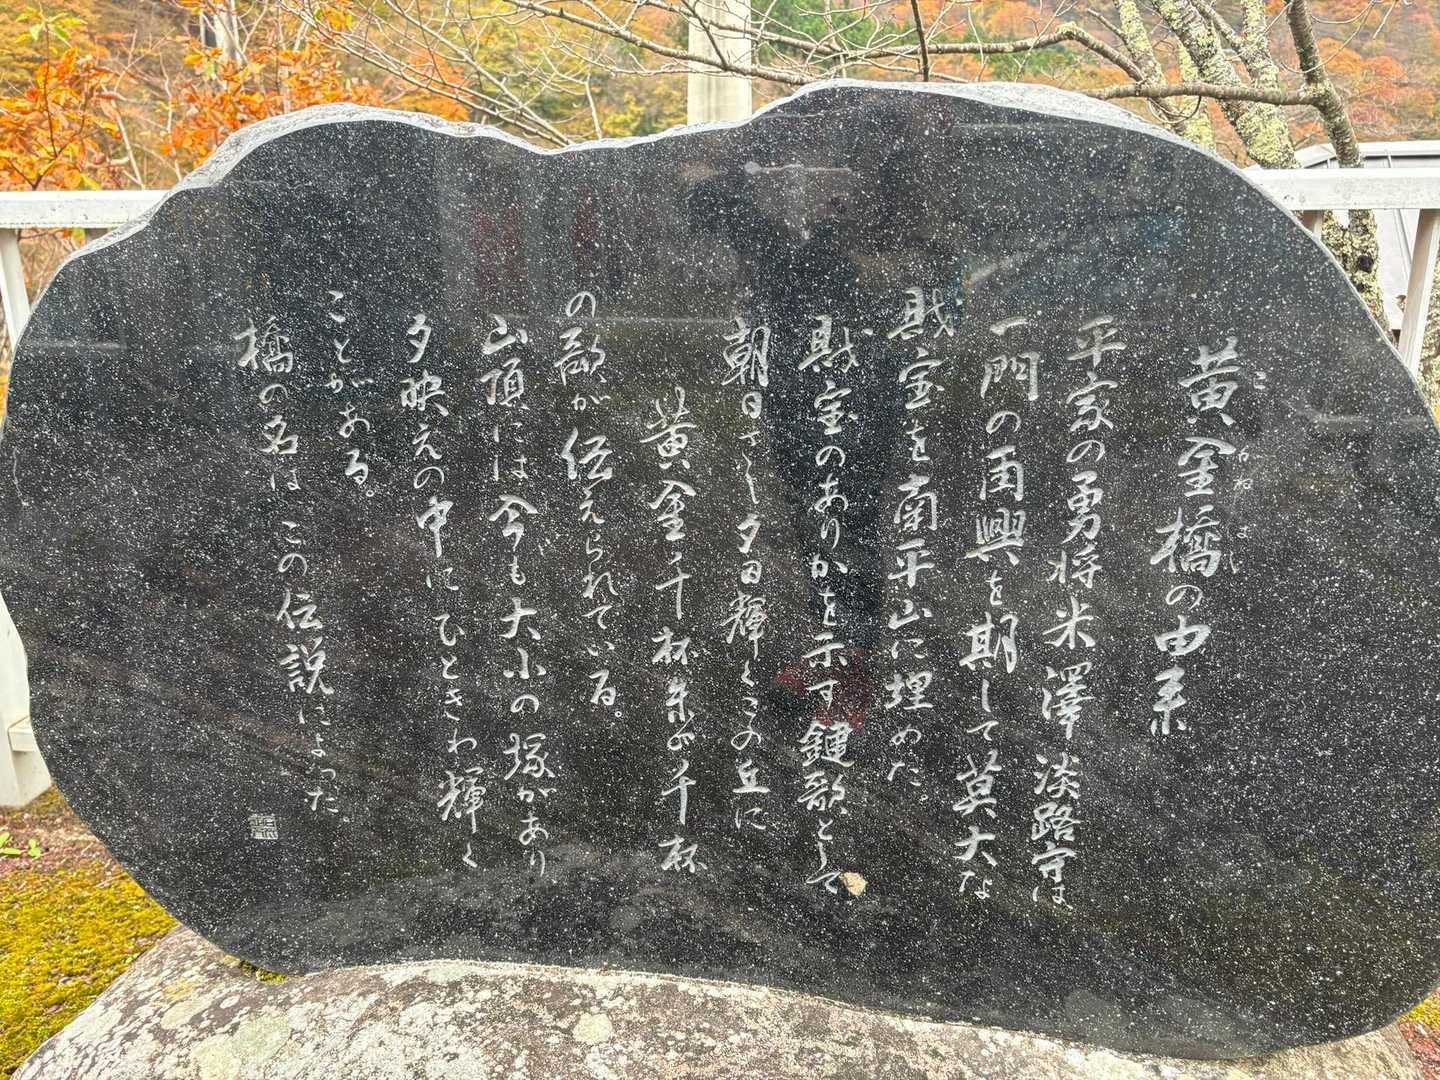 黄金橋の由来
こがねばし
平家の勇将米澤淡路守は
一門の再興を期して莫大な
財宝を南平山に埋めた。
財宝のありかを示す鍵歌として
朝日さし夕日輝くこの丘に
黄金千杯朱が千杯
の歌が伝えられている。
山頂には今も大小の塚があり
夕映えの中にひときわ輝く
ことがある。
橋の名は この伝説によった。